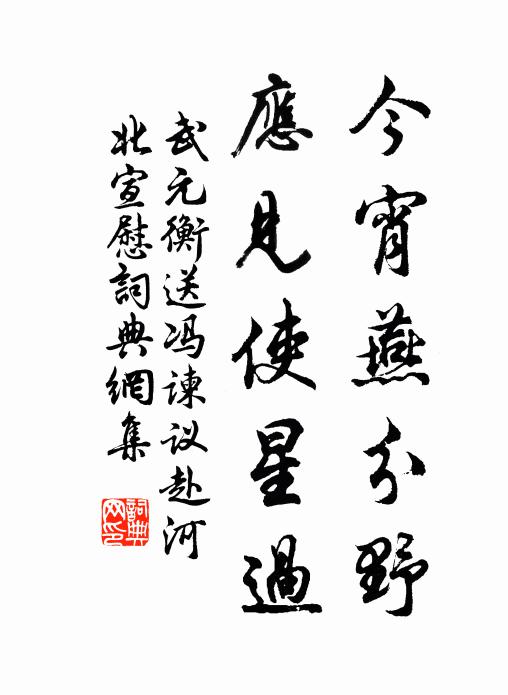 今宵燕分野
應見使星過
武元衡送冯諫议赴河
北宣慰詞典網集
詞典网印